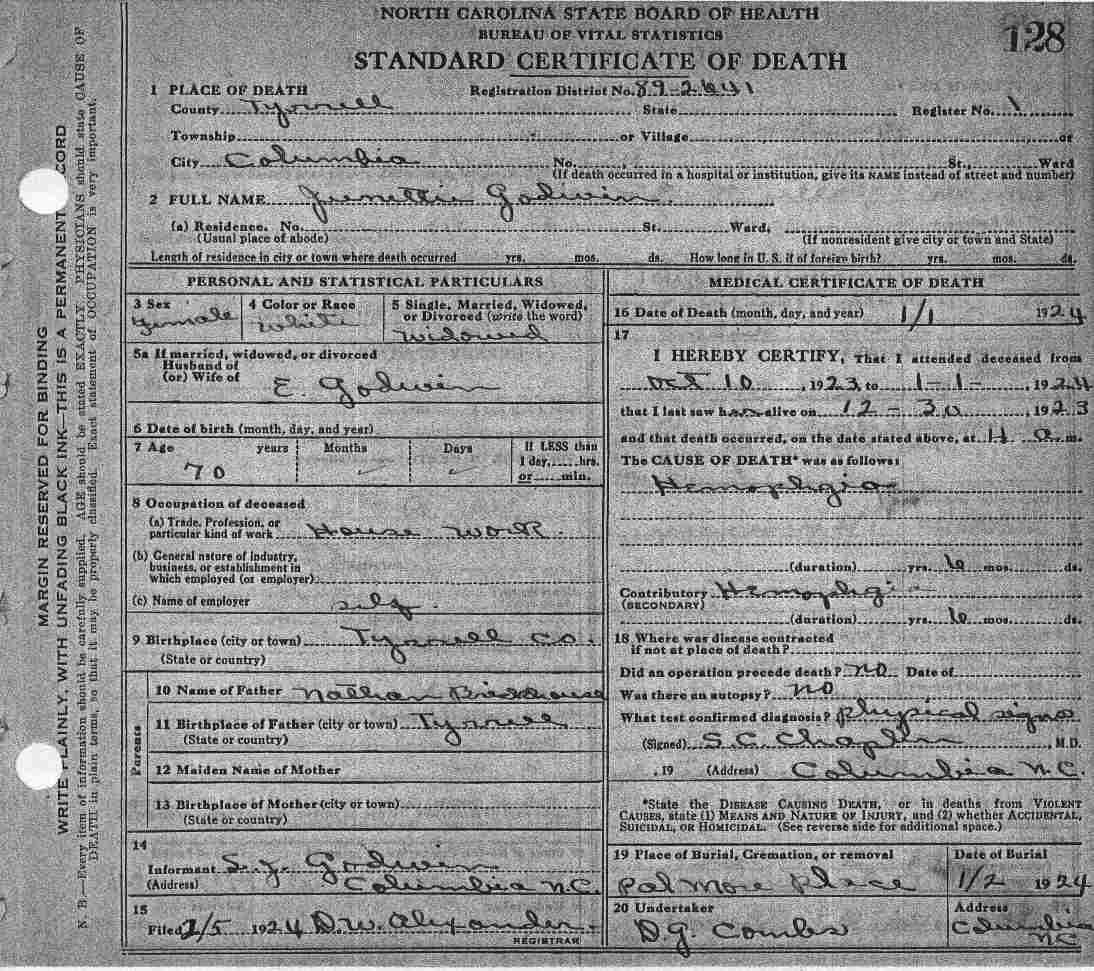 NORTH CAROLINA STATE BOARD OF HEALTH
BUREAU OF VITAL STATISTICS
STANDARD CERTIFICATE OF DEATH
128
1 PLACE OF DEATH Registration District No. 89-2641
County Tyrrell State Register No. 1
Township or Village or
City Columbia No. St., Ward
(If death occurred in a hospital or institution, give its NAME instead of street and number)
2 FULL NAME Godwin
(a) Residence. No. St. Ward,
(Usual place of abode) (If nonresident give city or town and State)
Length of residence in city or town where death occurred yrs. mos. ds. How long in U. S. if of foreign birth? yrs. mos. ds.
PERSONAL AND STATISTICAL PARTICULARS
3 Sex 4 Color or Race 5 Single, Married, Widowed, or Divorced (write the word)
Female White Widowed
5a If married, widowed, or divorced
Husband of
(or) Wife of E. Godwin
6 Date of birth (month, day, and year)
7 Age years Months Days If LESS than
1 day, hrs.
or min.
70
8 Occupation of deceased
(a) Trade, Profession, or
particular kind of work House work.
(b) General nature of industry,
business, or establishment in
which employed (or employer)
(c) Name of employer self.
9 Birthplace (city or town) Tyrrell Co.
(State or country)
Parents
10 Name of Father Nathan Brickhouse
11 Birthplace of Father (city or town) Tyrrell
(State or country)
12 Maiden Name of Mother
13 Birthplace of Mother (city or town)
(State or country)
14
Informant S. J. Godwin
(Address) Columbia N.C.
15
Filed 1924 D. W. Alexander
REGISTRAR
MEDICAL CERTIFICATE OF DEATH
16 Date of Death (month, day, and year) 1/1 1924
17
I HEREBY CERTIFY, That I attended deceased from
Oct 10, 1923 to 1-1-, 1924
that I last saw her alive on 12-30, 1923
and that death occurred, on the date stated above, at m.
The CAUSE OF DEATH* was as follows:
(duration) yrs. 6 mos. ds.
Contributory
(SECONDARY)
(duration) yrs. 6 mos. ds.
18 Where was disease contracted
if not at place of death?
Did an operation precede death? no Date of
Was there an autopsy? no
What test confirmed diagnosis? physical signs
(Signed) S. C. Chaplin, M.D.
, 19 (Address) Columbia N.C.
*State the DISEASE CAUSING DEATH, or in deaths from VIOLENT
CAUSES, state (1) MEANS AND NATURE OF INJURY, and (2) whether ACCIDENTAL,
SUICIDAL, OR HOMICIDAL. (See reverse side for additional space.)
19 Place of Burial, Cremation, or removal Date of Burial
Place 1/2 1924
20 Undertaker Address
D. G. Combs Columbia
N.C.
MARGIN RESERVED FOR BINDING
WRITE PLAINLY, WITH UNFADING BLACK INK—THIS IS A PERMANENT RECORD
N. B.—Every item of information should be carefully supplied. AGE should be stated EXACTLY. PHYSICIANS should state CAUSE OF
DEATH in plain terms, so that it may be properly classified. Exact statement of OCCUPATION is very important.